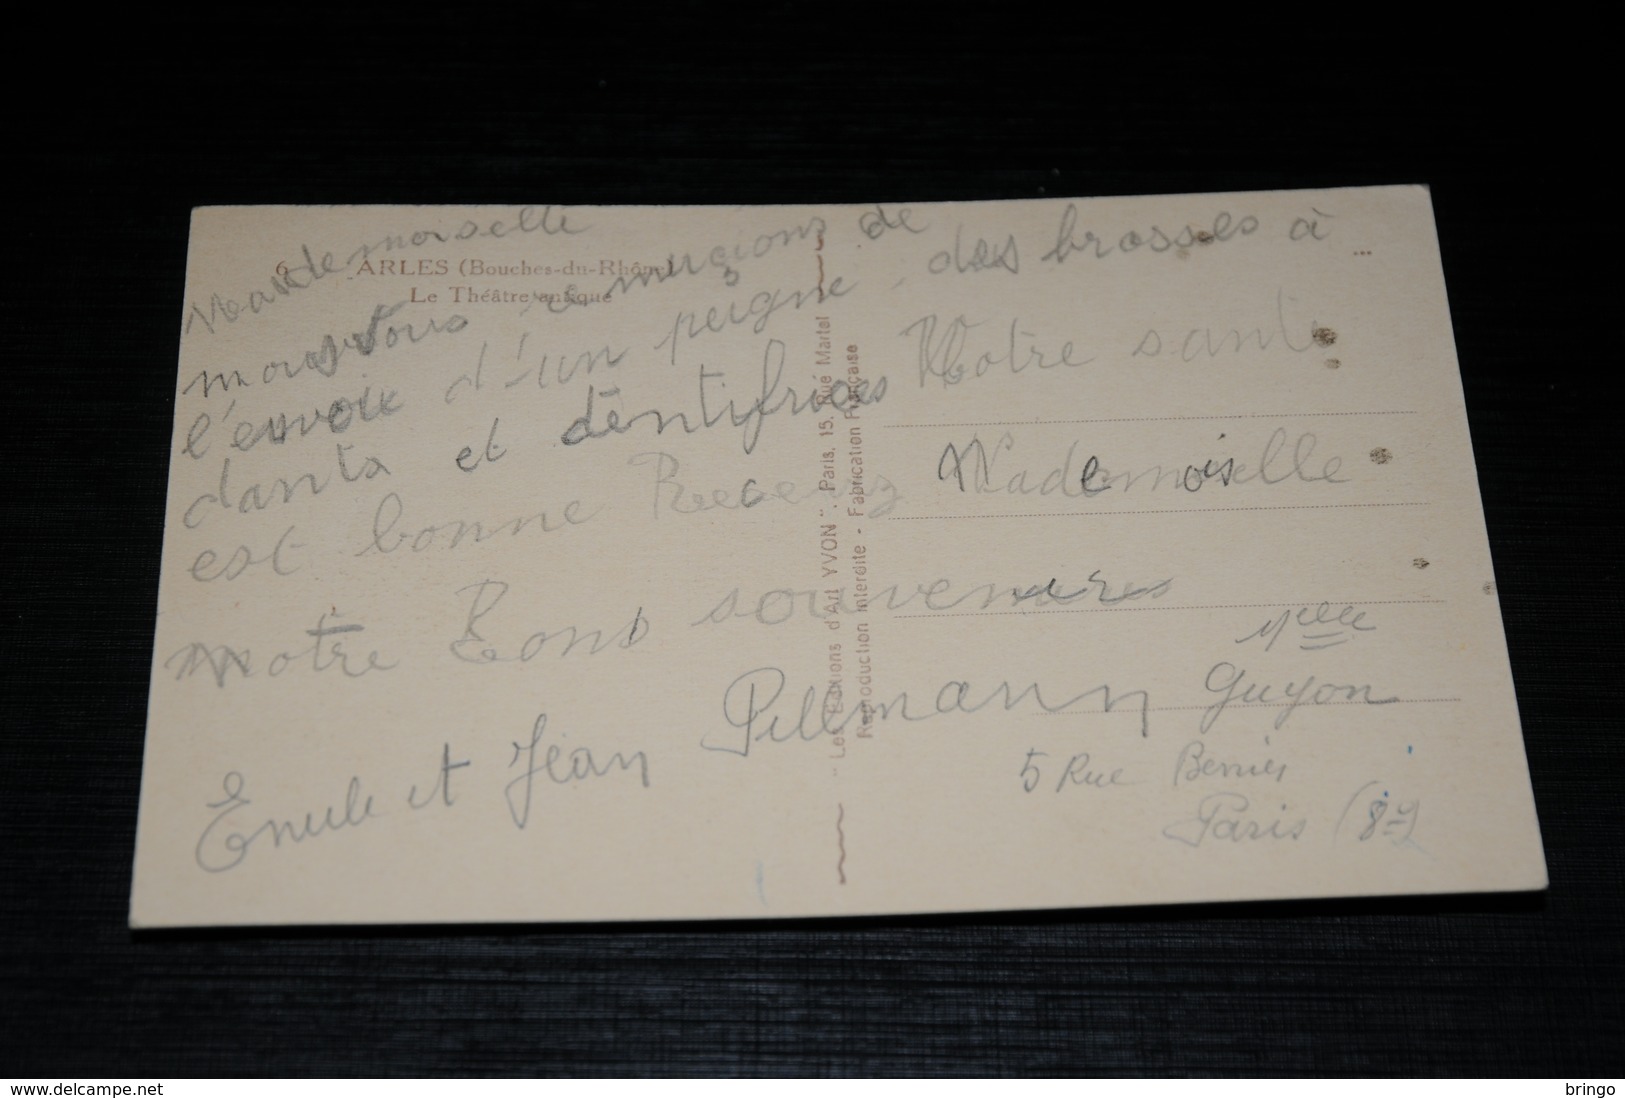 6. ARLES (Bouches-du-Rhône)
Le Théâtre antique
Mademoiselle
nous vous remerçions de
l'envoie d'un peigne, des brosses à
dants et dentifrices Notre santé
est bonne Recevez Mademoiselle
notre Bons souvenires
Emile et Jean Pillmann
Guyon
5 Rue Bernier
Paris (8e)
" Les Editions d'Art YVON ", Paris, 15, Rue Martel
Reproduction interdite - Fabrication Française
www.delcampe.net
bringo